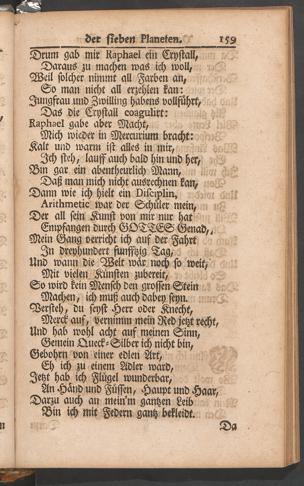 der sieben Planeten. 159
Drum gab mir Raphael ein Crystall,
Daraus zu machen was ich woll,
Weil solcher nimmt all Farben an,
So man nicht all erzehlen kan:
Jungfrau und Zwilling habens vollführt,
Das die Crystall coagulirt:
Raphael gabe aber Macht,
Mich wieder in Mercurium bracht:
Kalt und warm ist alles in mir,
Ich steh, lauff auch bald hin und her,
Bin gar ein abentheurlich Mann,
Daß man mich nicht ausrechnen kan,
Dann wie ich hielt ein Disciplin,
Arithmetic war der Schüler mein,
Der all sein Kunst von mir nur hat
Empfangen durch GOTTES Genad,
Mein Gang verricht ich auf der Fahrt
In dreyhundert funfftzig Tag,
Und wann die Welt wär noch so weit,
Mit vielen Künsten zubereit,
So wird kein Mensch den grossen Stein
Machen, ich muß auch dabey seyn.
Versteh, du seyst Herr oder Knecht,
Merck auf, vernimm mein Red jetzt recht,
Und hab wohl acht auf meinen Sinn,
Gemein Queck-Silber ich nicht bin,
Gebohrn von einer edlen Art,
Eh ich zu einem Adler ward,
Jetzt hab ich Flügel wunderbar,
An Händ und Füssen, Haupt und Haar,
Darzu auch an mein'm gantzen Leib
Bin ich mit Federn gantz bekleidt.
Da